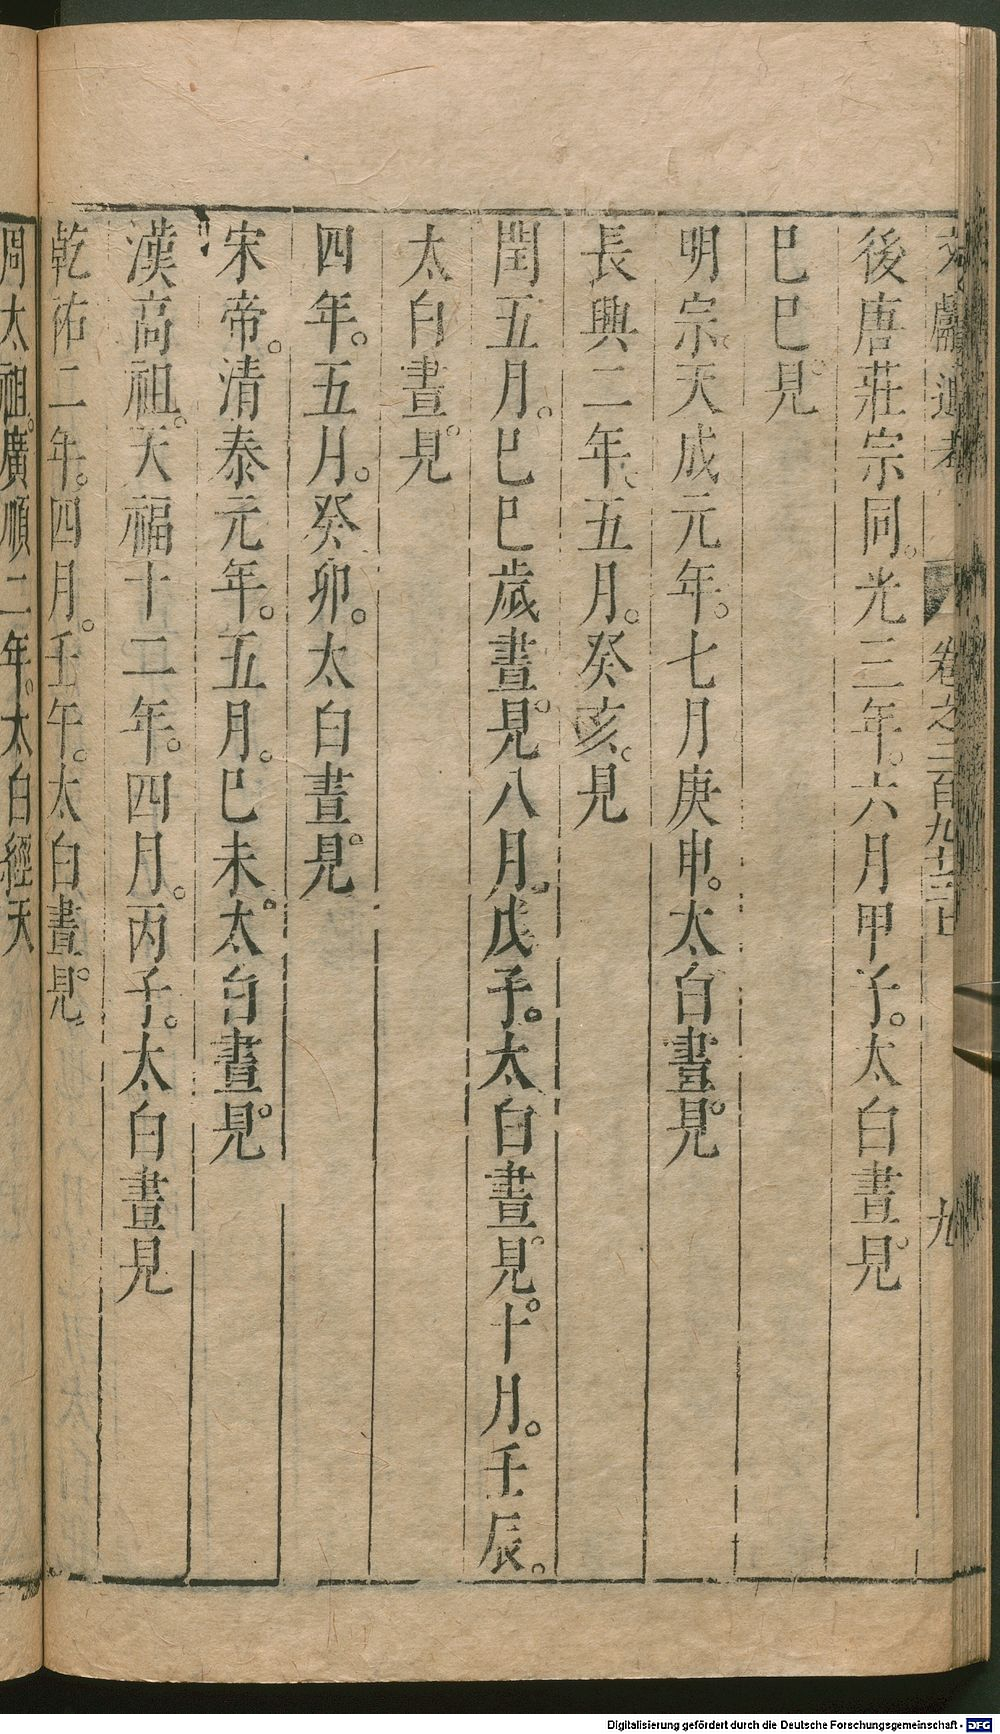 文獻通考 卷之二百九十三上 九
後唐莊宗同。光三年。六月甲子。太白晝。見
巳巳。見
明宗。天成元年。七月庚申。太白晝。見
長興二年。五月。癸亥。見
閏五月。巳巳歲晝。見八月。戊子。太白晝。見。十月。壬辰。
太白晝。見
四年。五月。癸卯。太白晝。見
宋帝。清泰元年。五月。巳未。太白晝。見
漢高祖。天福十二年。四月。丙子。太白晝見
乾祐二年。四月。壬午。太白晝。見
周太祖。廣順二年。太白經天
Digitalisierung gefördert durch die Deutsche Forschungsgemeinschaft - DFG